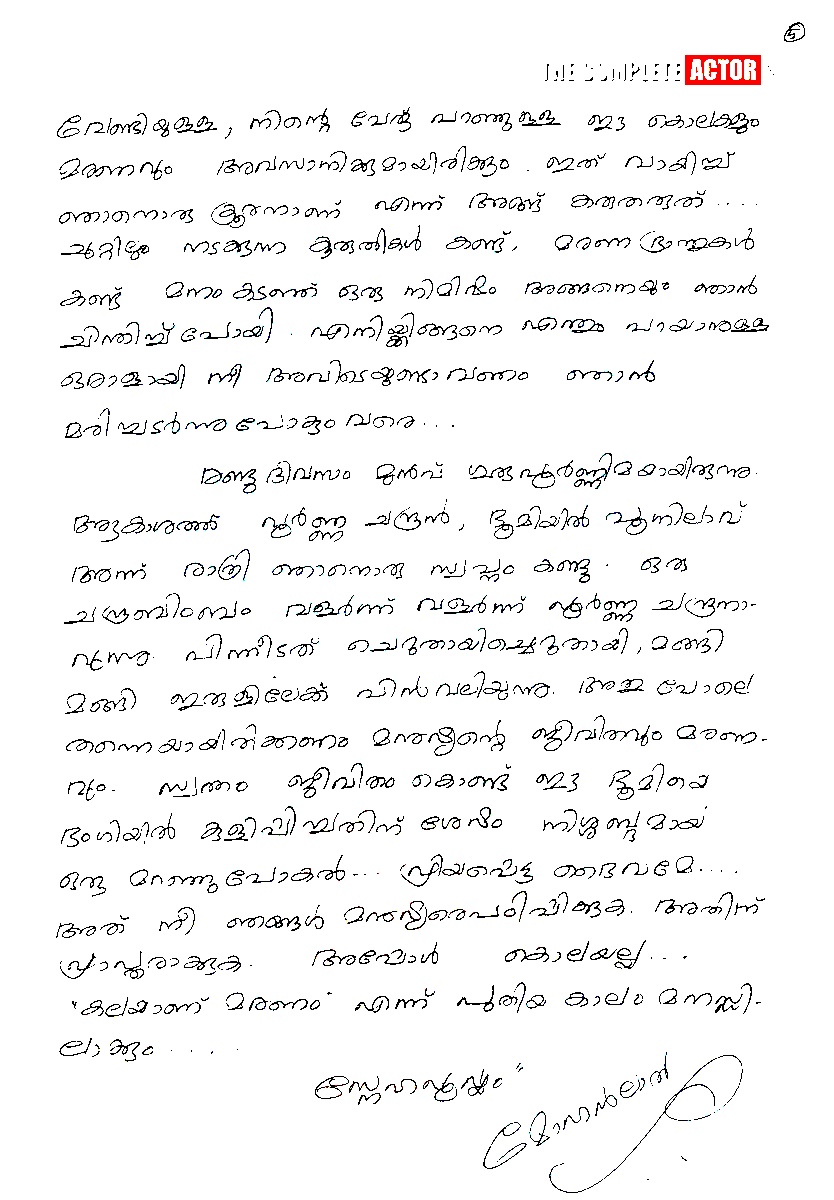 5
THE COMPLETE ACTOR
വേണ്ടിയുള്ള, നിന്റെ പേര് പറഞ്ഞുള്ള ഈ കൊലകളും
മരണവും അവസാനിക്കുമായിരിക്കും. ഇത് വായിച്ച്
ഞാനൊരു ക്രൂരനാണ് എന്ന് അങ്ങ് കരുതരുത്....
ചുറ്റിലും നടക്കുന്ന ക്രൂരതകൾ കണ്ട്, മരണ ഭ്രാന്തുകൾ
കണ്ട് മനം കടഞ്ഞ് ഒരു നിമിഷം അങ്ങനെയും ഞാൻ
ചിന്തിച്ച് പോയി. എനിയ്ക്കിങ്ങനെ എന്തും പറയാനുള്ള
ഒരാളായി നീ അവിടെയുണ്ടാവണം ഞാൻ
മരിച്ചടർന്നു പോകും വരെ...
രണ്ടു ദിവസം മുൻപ് ഗുരുപൂർണ്ണിമയായിരുന്നു.
ആകാശത്ത് പൂർണ്ണ ചന്ദ്രൻ, ഭൂമിയിൽ പൂനിലാവ്
അന്ന് രാത്രി ഞാനൊരു സ്വപ്നം കണ്ടു. ഒരു
ചന്ദ്രബിംബം വളർന്ന് വളർന്ന് പൂർണ്ണ ചന്ദ്രനാ-
വുന്നു. പിന്നീടത് ചെറുതായിച്ചെറുതായി, മങ്ങി
മങ്ങി ഇരുളിലേക്ക് പിൻവലിയുന്നു. അതു പോലെ
തന്നെയായിരിക്കണം മനുഷ്യന്റെ ജീവിതവും മരണ-
വും. സ്വന്തം ജീവിതം കൊണ്ട് ഈ ഭൂമിയെ
ഭംഗിയിൽ കുളിപ്പിച്ചതിന് ശേഷം നിശ്ശബ്ദമായ്
ഒരു മറഞ്ഞുപോകൽ... പ്രിയപ്പെട്ട ദൈവമേ....
അത് നീ ഞങ്ങൾ മനുഷ്യരെ പഠിപ്പിക്കുക. അതിന്
പ്രാപ്തരാക്കുക. അപ്പോൾ കൊലയല്ല...
"കലയാണ് മരണം" എന്ന് പുതിയ കാലം മനസ്സി-
ലാക്കും.....
സ്നേഹപൂർവ്വം"
മോഹൻലാൽ